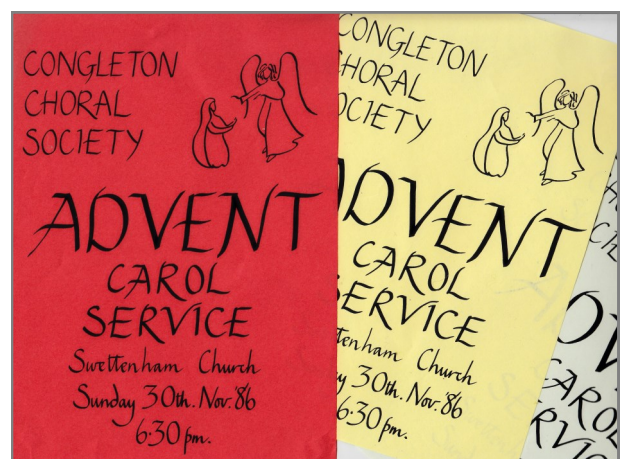 CONGLETON
CHORAL
SOCIETY
ADVENT
CAROL
SERVICE
Swettenham Church
Sunday 30th. Nov. '86
6·30 pm.
CONGLETON
CHORAL
SOCIETY
ADVENT
CAROL
SERVICE
tenham Church
30th. Nov. '86
6·30 pm.